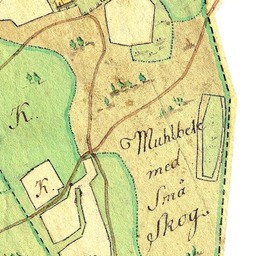 K.
Muhlbete
med
Små
Skog.
K.